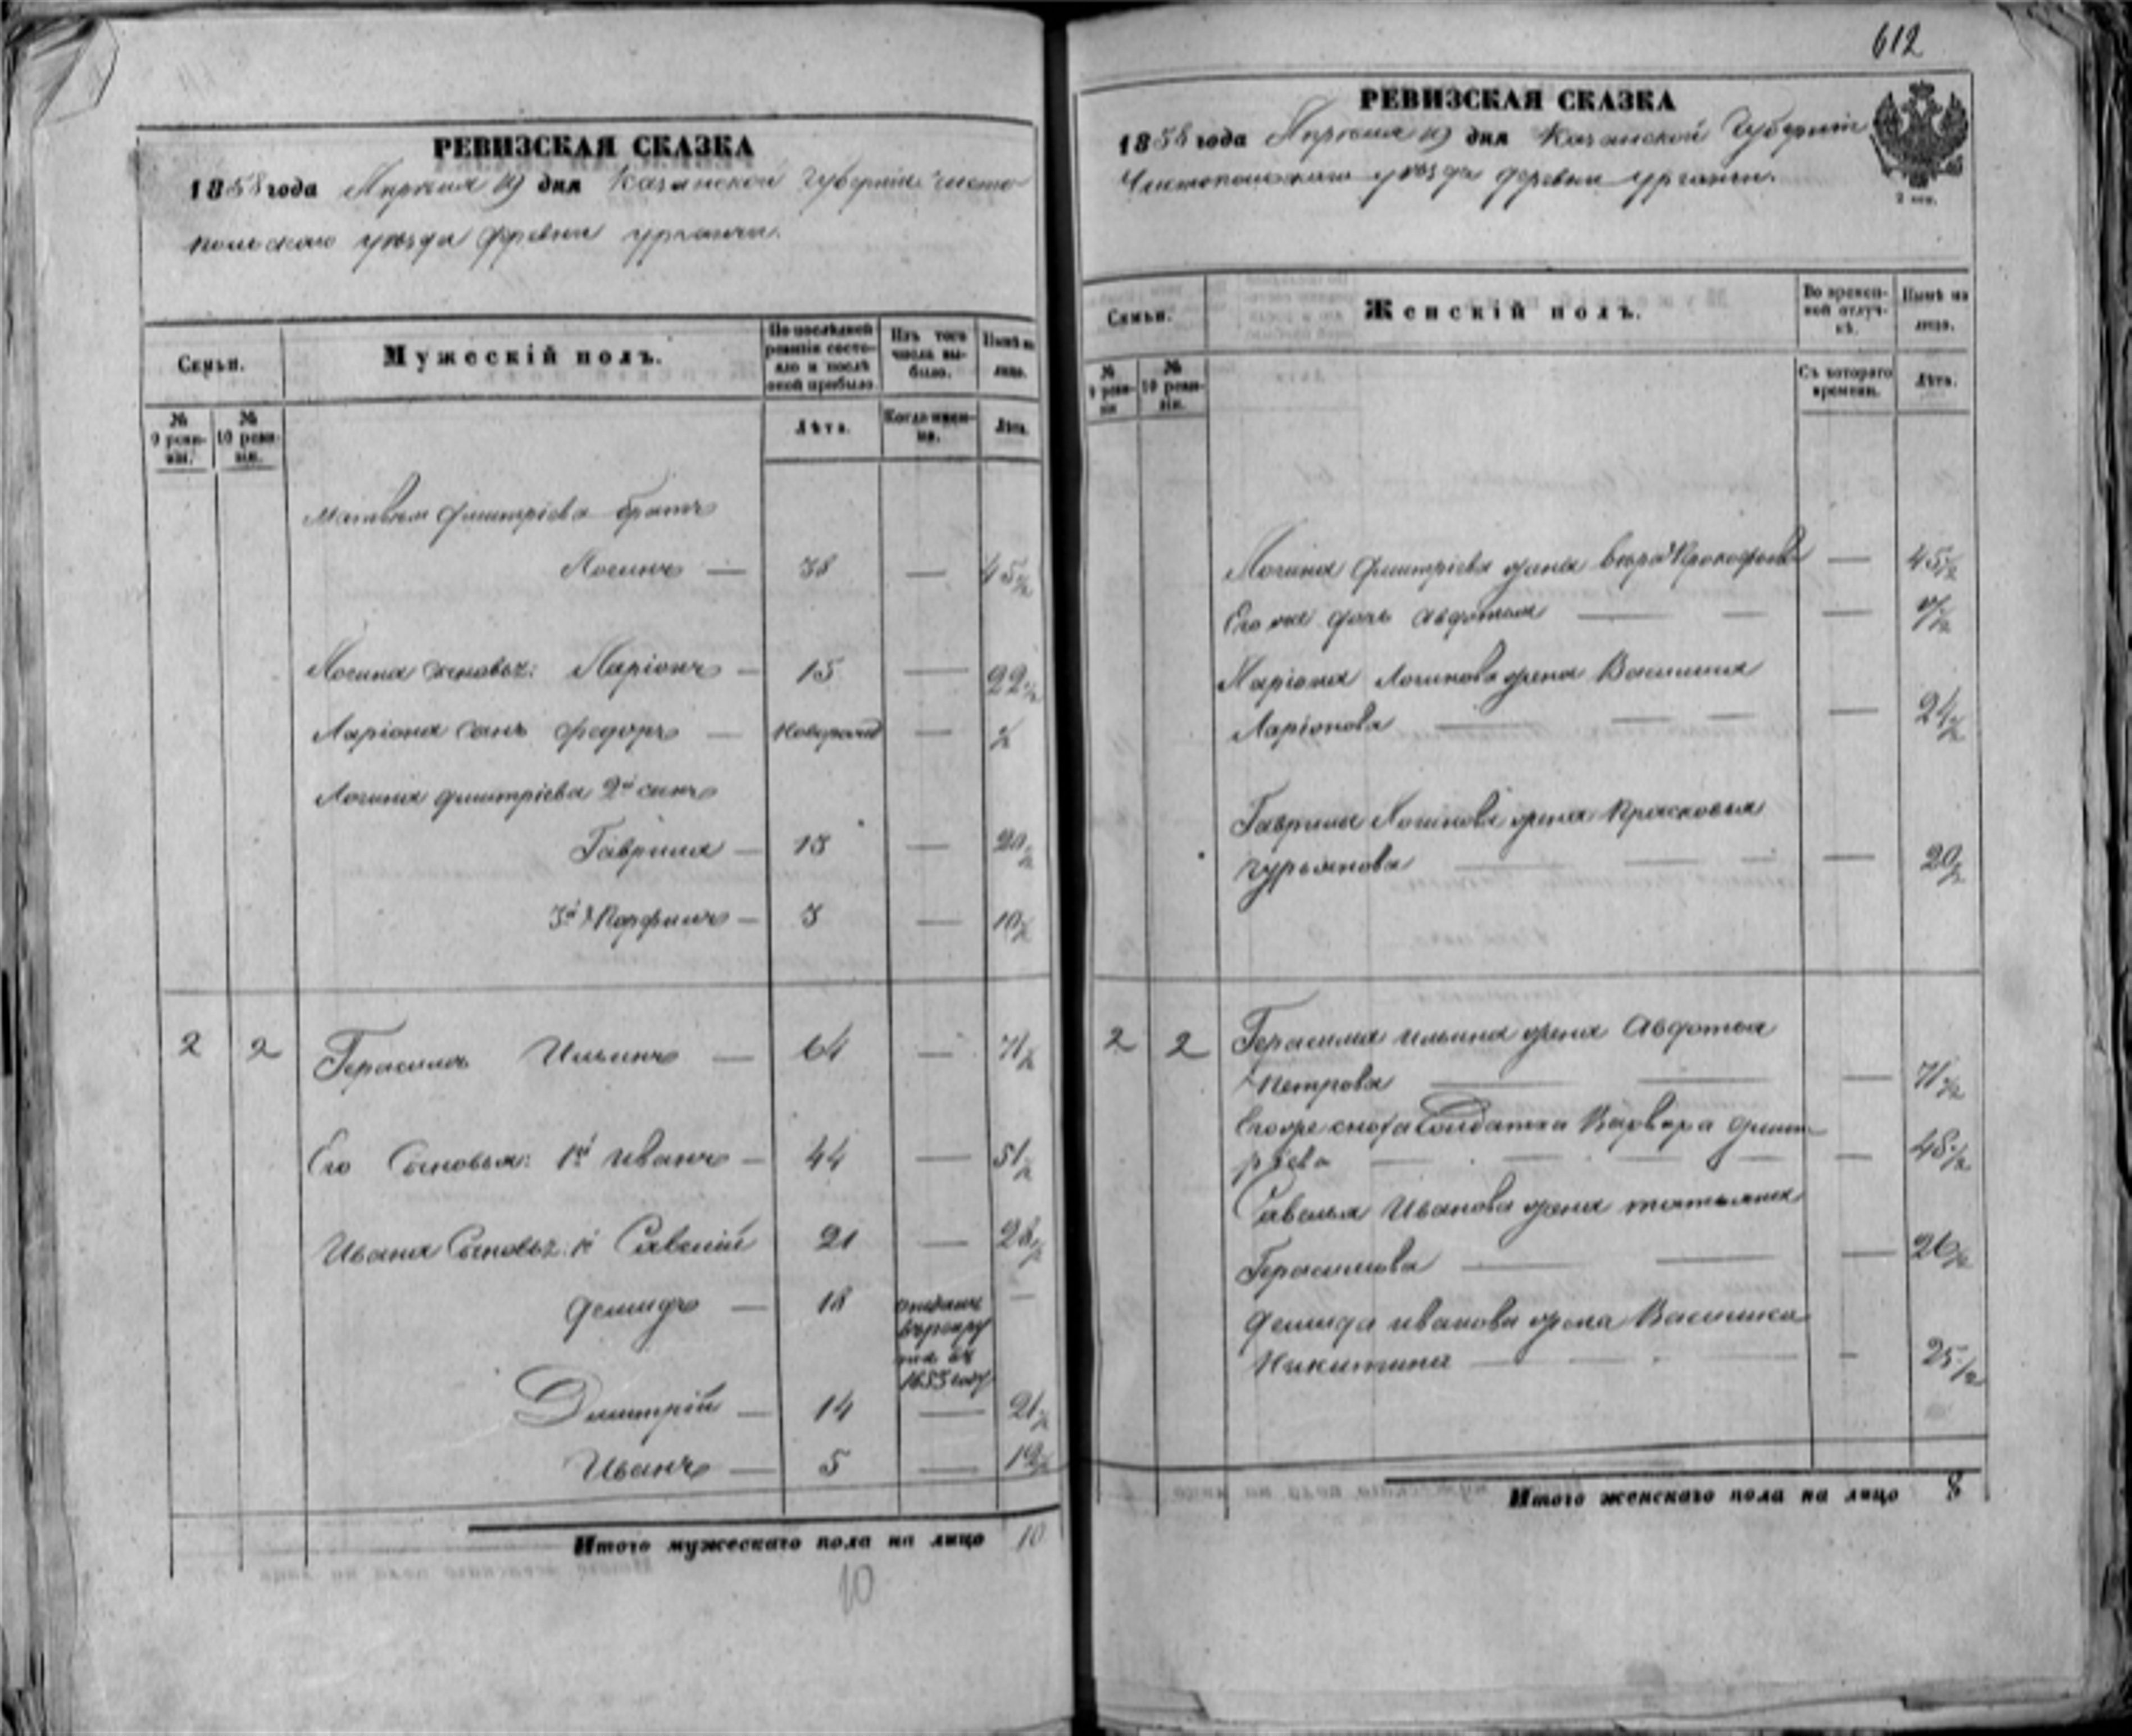 РЕВИЗСКАЯ СКАЗКА
1858 года Апреля 19 дня Казанской Губернии Чисто
польскаго уезда деревни Урганчи.
Семьи.
Мужескій полъ.
По послѣдней ревизіи состояло и послѣ оной прибыло.
Изъ того числа выбыло.
Нынѣ на лицо.
№ 9 ревизіи.
№ 10 ревизіи.
Лѣта.
Когда именно.
Лѣта.
Матвея Дмитріева братъ
Логинъ — 38 — 45½
Логина сыновья: Ларіонъ — 15 — 22½
Ларіона сынъ Федоръ — новорожд — ½
Логина Дмитріева 2й сынъ
Гаврила — 13 — 20½
3й Парфилъ — 3 — 10½
2 2 Герасимъ Ильинъ — 64 — 71½
Его Сыновья: 1й Иванъ — 44 — 51½
Ивана Сыновья: 1й Савелій 21 — 28½
Демидъ — 18 —
1855 году
Дмитрій — 14 — 21½
Иванъ — 5 — 12½
Итого мужескаго пола на лицо 10
10
612
РЕВИЗСКАЯ СКАЗКА
1858 года Апреля 19 дня Казанской Губерніи
Чистопольскаго уезда деревни Урганчи.
2 коп.
Семьи.
Женскій полъ.
Во временной отлучкѣ.
Нынѣ на лицо.
№ 9 ревизіи
№ 10 ревизіи.
Съ котораго времени.
Лѣта.
Логина Дмитріева жена Вера Прокофьева — 45½
Его же дочь Авдотья —
Ларіона Логинова жена Василиса
Ларіонова — 24½
Гаврилы Логинова жена Прасковья
Гурьянова — 20½
2 2 Герасима Ильина жена Авдотья
Петрова — 71½
Его же сноха Солдатка Варвара Дмит-
ріева — 48½
Савелья Иванова жена Татьяна
Герасимова — 26½
Демида Иванова жена Василиса
Никитина — 25½
Итого женскаго пола на лицо 8